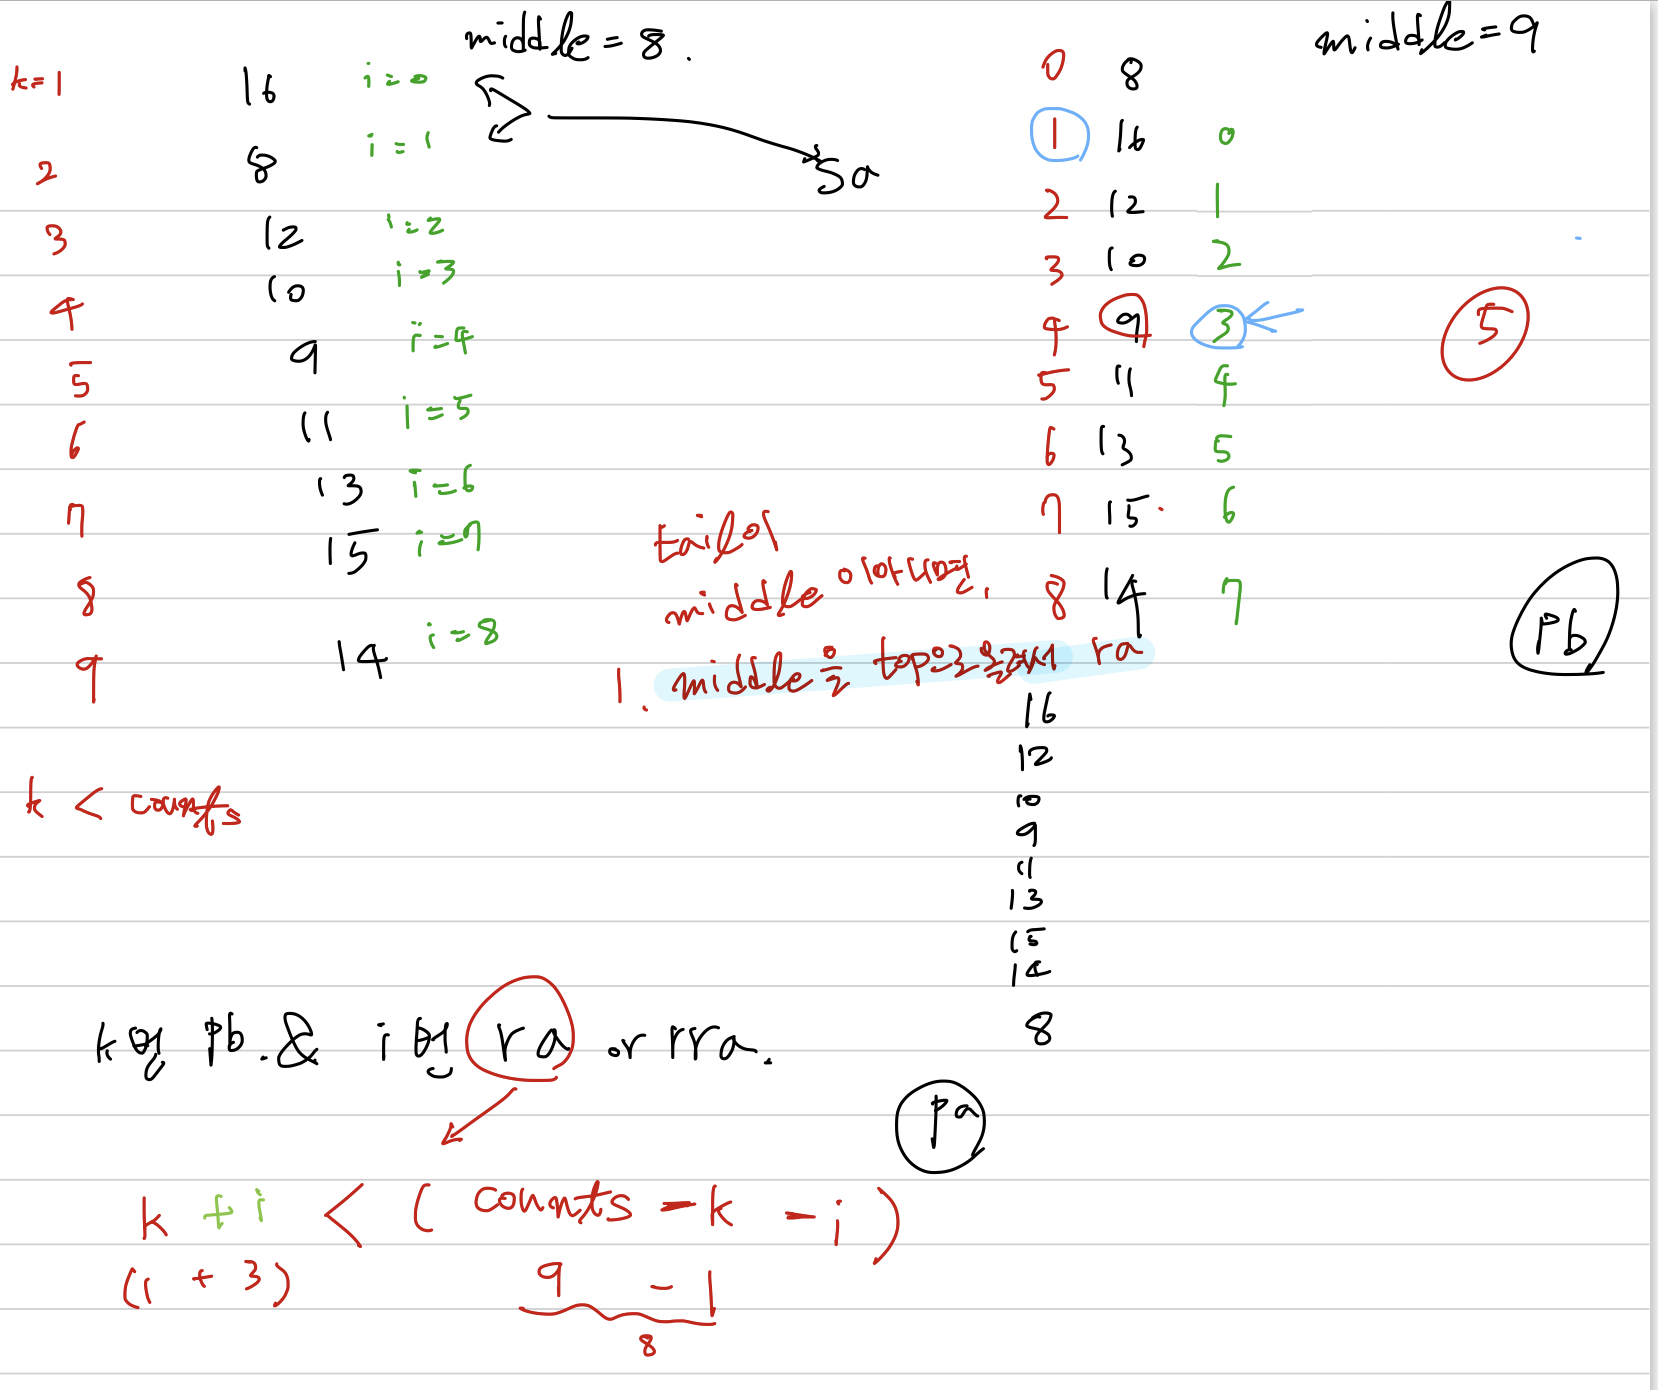 middle = 8.
k=1 16 i=0
2 8 i=1
3 12 i=2
4 10 i=3
5 9 i=4
6 11 i=5
7 13 i=6
8 15 i=7
9 14 i=8
Sa
k < counts
middle=9
0 8
1 16 0
2 12 1
3 10 2
4 9 3
5 11 4
6 13 5
7 15 6
8 14 7
5
pb
tail이
middle 이아니면,
1. middle을 top으로올려서 ra
16
12
10
9
11
13
15
14
8
k번 pb. & i번 ra or rra.
pa
k + i < ( counts - k - i )
(1 + 3) 9 - 1
8